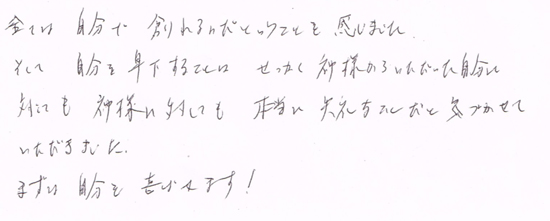 全ては 自分で 創れるんだということを 感じました
そして 自分を卑下することは せっかく神様からいただいた自分に
対しても 神様に対しても 本当に失礼なことだと気づかせて
いただきました。
まずは 自分を 喜ばせます!